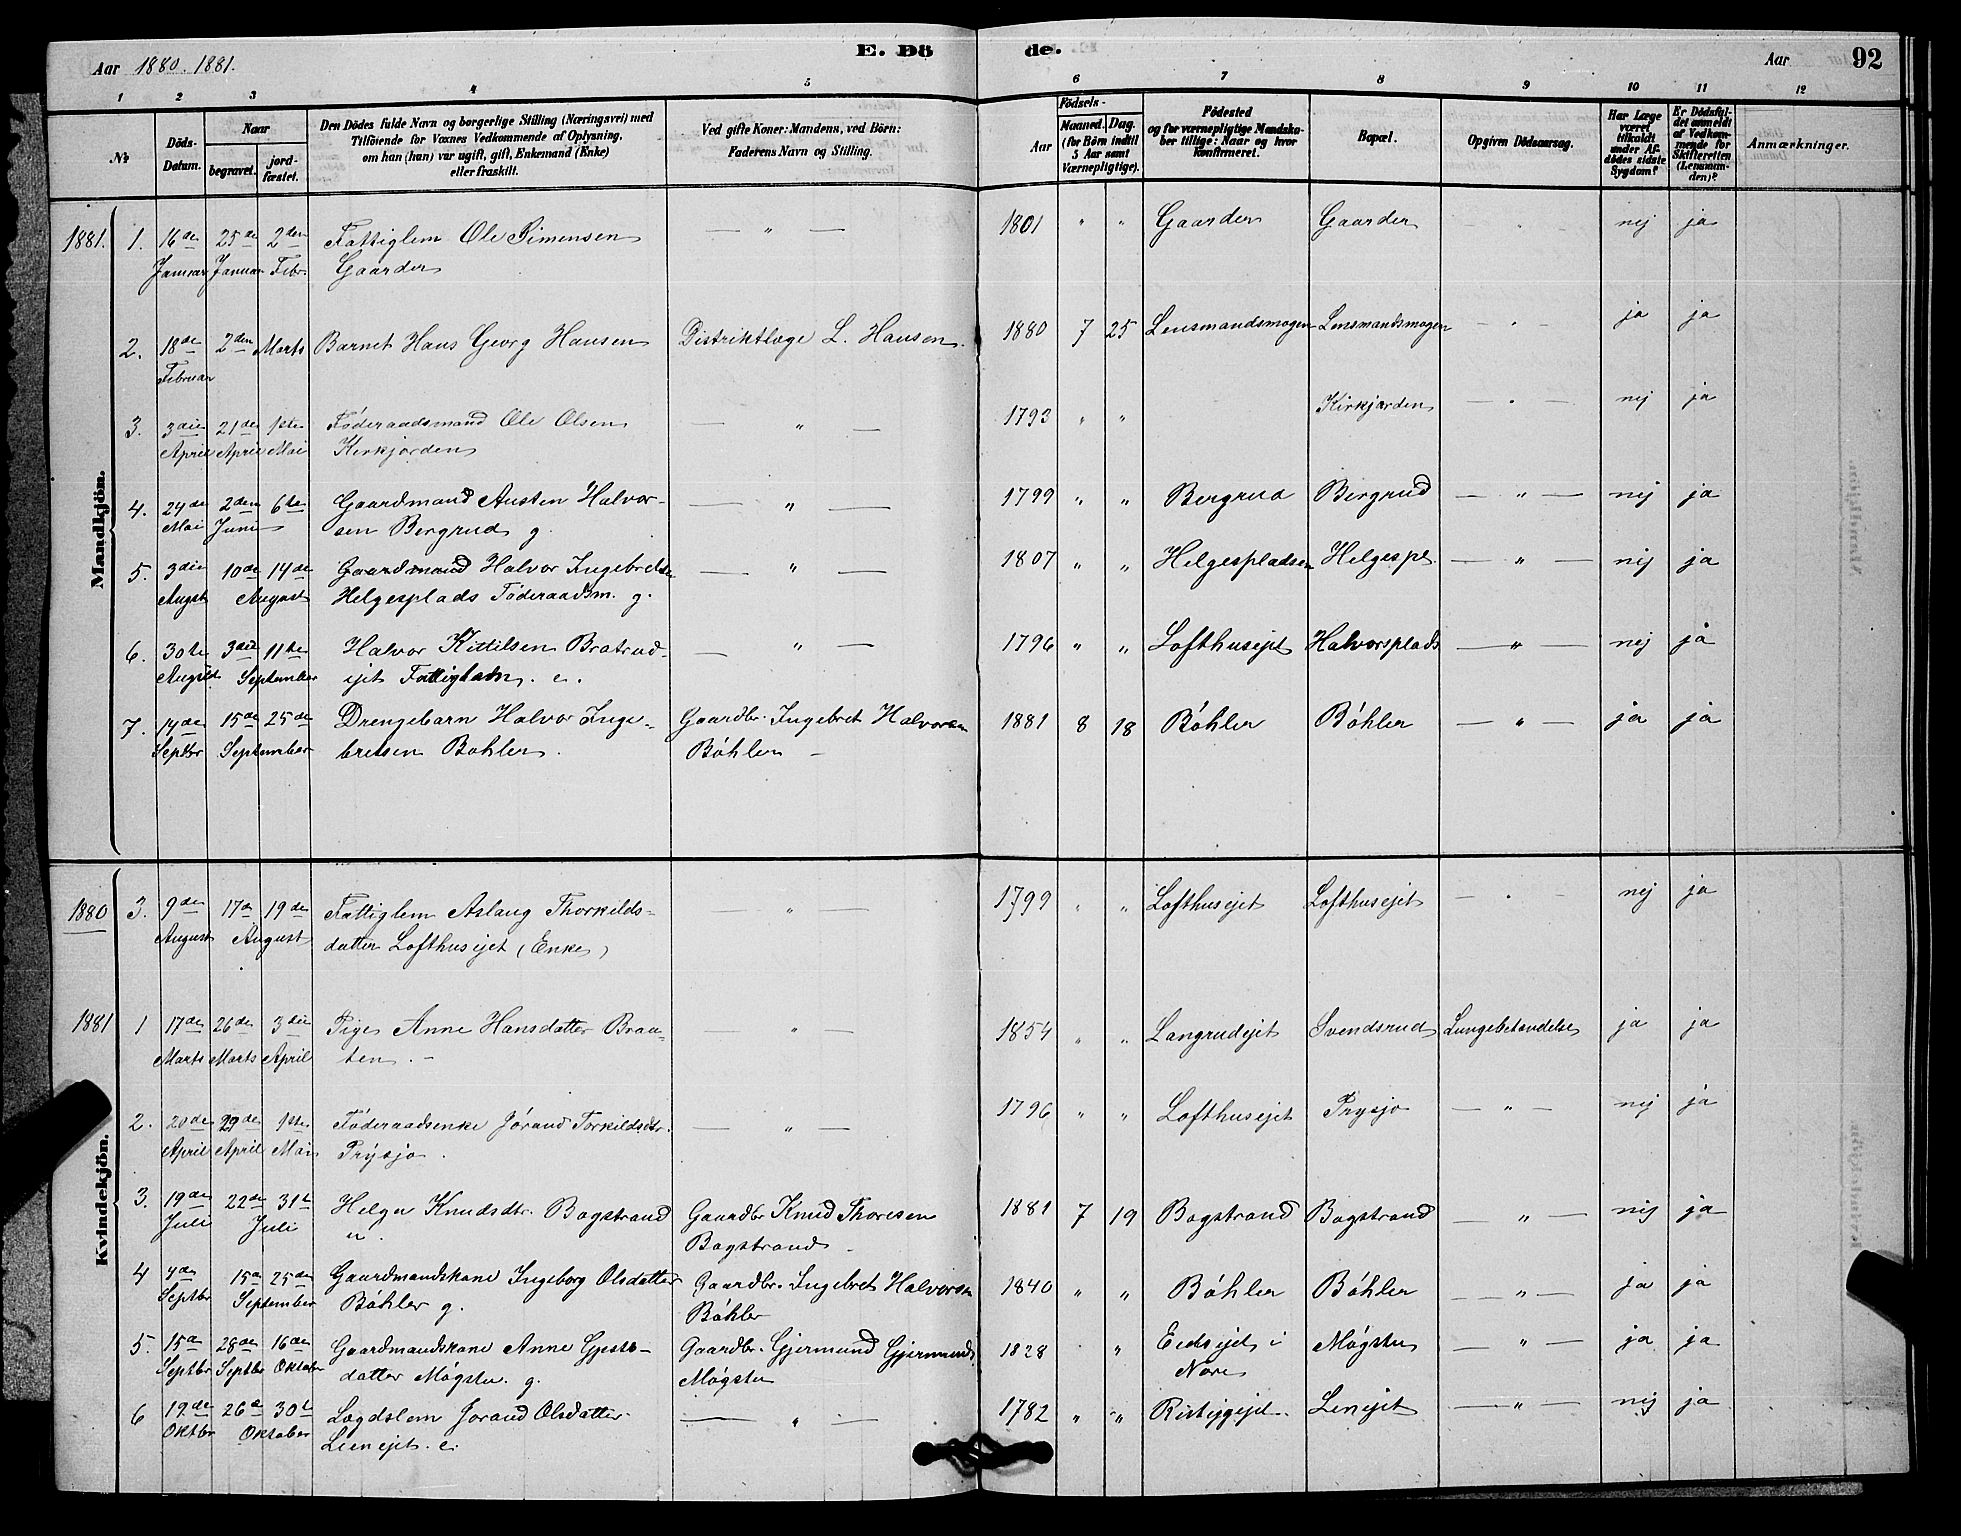 E. Dö de.
Aar 1880. 1881. Aar 92
1 2 3 4 5 6 7 8 9 10 11 12
№ Döds-Datum. Naar begravet. jord-fæstet. Den Dödes fulde Navn og borgerlige Stilling (Næringsvei) med Tilföiende for Voxnes Vedkommende af Oplysning, om han (hun) var ugift, gift, Enkemand (Enke) eller fraskilt. Ved gifte Koner: Mandens, ved Börn: Faderens Navn og Stilling. Födsels- Aar Maaned. Dag. (for Börn indtil 5 Aar samt Værnepligtige). Födested og for værnepligtige Mandskaber tillige: Naar og hvor konfirmeret. Bopæl. Opgiven Dödsaarsag. Har Læge været tilkaldt under Afdödes sidste Sygdom? Er Dödsfaldet anmeldt af Vedkommende for Skifteretten (Lensmanden)? Anmærkninger.
Mandkjön.
1881. 1. 16de 25de 2den Fattiglem Ole Simensen — " — 1801 " " Gaarder Gaarder — " — nej ja
Januar Januar Febr. Gaarder
2. 18de 2den Marts Barnet Hans Georg Hansen Distriktlæge L. Hansen. 1880 7 25 Lensmandsmogen Lensmandsmogen — " — ja ja
Februar
3. 3die 21de 1ste Føderaadsmand Ole Olsen — " — 1793 " " Kirkjorden — " — nej ja
April April Mai Kirkjorden
4. 24de 2den 6te Gaardmand Austen Halvor- — " — 1799 " " Bergrud Bergrud — " — nej ja
Mai Juni sen Bergrud g.
5. 3die 10de 14de Gaardmand Halvor Ingebretsen — " — 1807 " " Helgespladsen Helgespl. — " — nej ja
Augst August Helgesplads Føderaadsm. g.
6. 30te 3die 11te Halvor Kittilsen Bratrud- — " — 1796 " " Lofthusejet Halvorsplads — " — nej ja
August September ejet Fattiglem. e.
7. 14de 15de 25de Drengebarn Halvor Inge- Gaardbr. Ingebret Halvorsen 1881 8 18 Bøhler Bøhler — " — ja ja
Septbr September bretsen Bøhler. Bøhler —
Kvindekjön.
1880 3. 9de 17de 19de Fattiglem Aslaug Thorkilds- — " — 1799 " " Lofthusejet Lofthusejet — " — nej ja
August August datter Lofthusejet (Enke)
1881 1 17de 26de 3die Pige Anne Hansdatter Braa- — " — 1854 " " Langrudejet Svendsrud Lungebetændelse ja ja
Marts Marts April ten. —
2. 20de 29de 1ste Føderaadsenke Jørand Torkildsdtr. — " — 1796 " " Lofthusejet Prysjo — " — nej ja
April April Mai Prysjo.
3. 19de 22de 31te Helga Knudsdtr. Bogstrand Gaardbr. Knud Thoresen 1881 7 19 Bogstrand Bogstrand — " — nej ja
Juli Juli u. Bogstrand —
4 4de 15de 25de Gaardmandskone Ingeborg Olsdatter Gaardbr. Ingebret Halvorsen 1840 " " Bøhler Bøhler — " — ja ja
Septbr September Bøhler g. Bøhler
5. 15de 28de 16de Gaardmandskone Anne Gjests- Gaardbr. Gjermund Gjermunds. 1828 " " Eidsejet i Møgstu — " — ja ja
Septbr Septbr Oktober datter Møgstu. g. Møgstu Nore
6 19de 26de 30te Lægdslem Jorand Olsdatter — " — 1782 " " Lienejet — " — nej ja
Oktbr Oktober Lienejet. e.